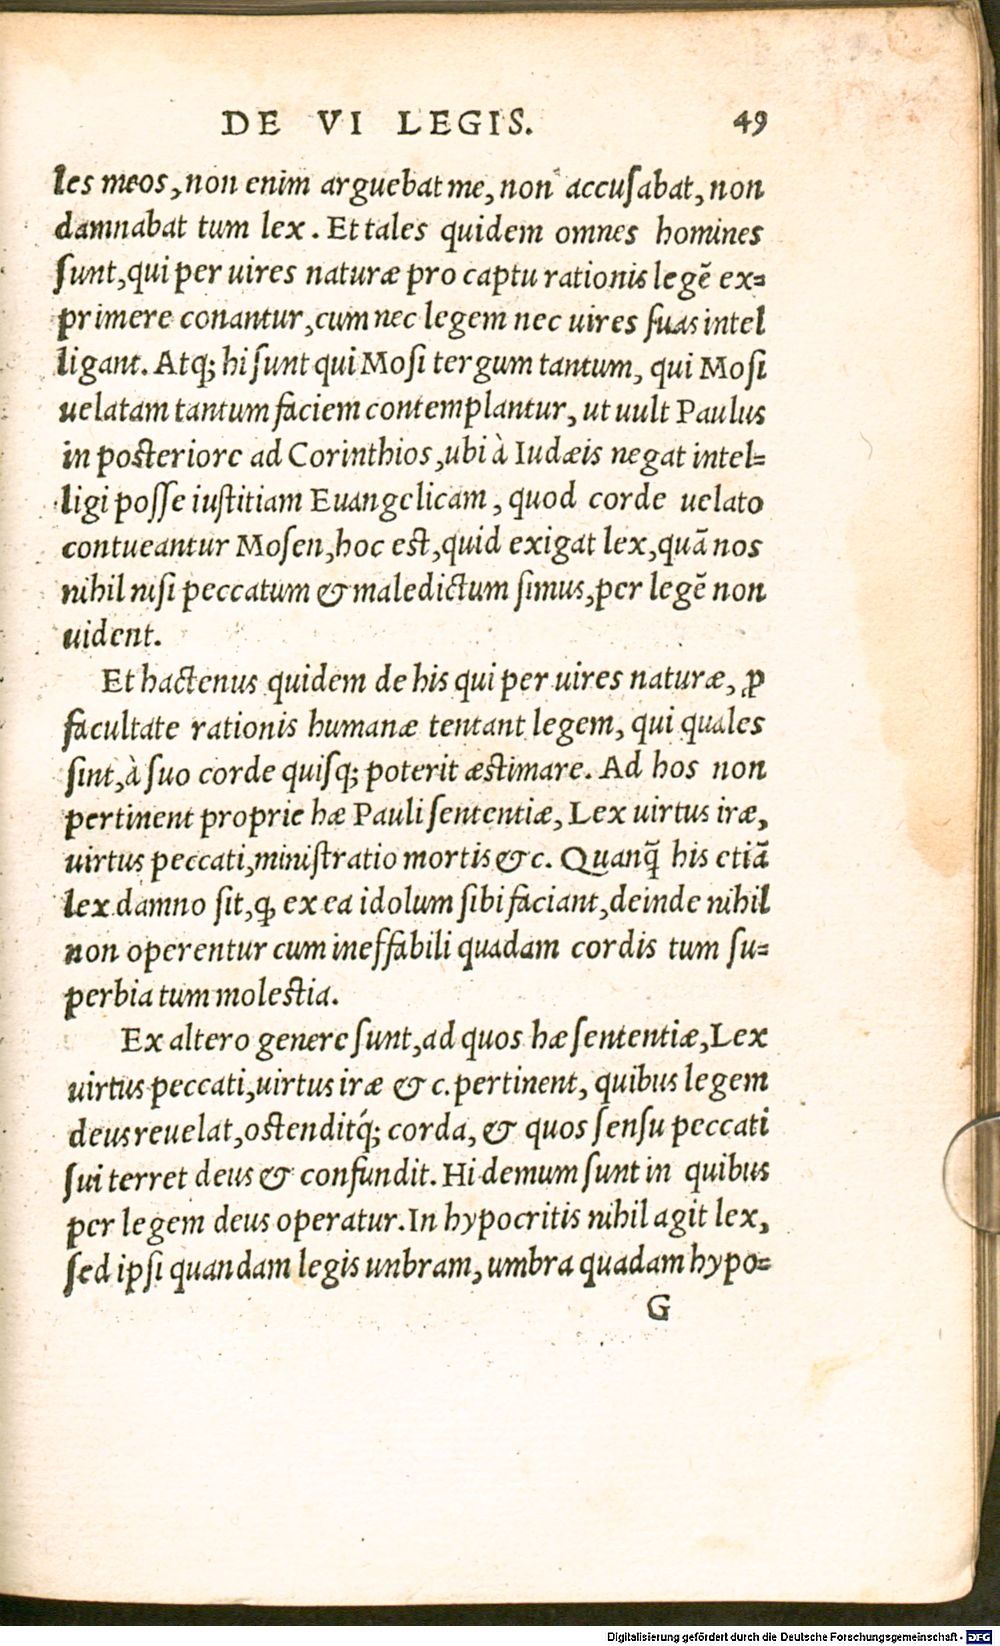 DE VI LEGIS. 49
les meos, non enim arguebat me, non accuſabat, non
damnabat tum lex. Et tales quidem omnes homines
ſunt, qui per uires naturæ pro captu rationis legē ex⸗
primere conantur, cum nec legem nec uires ſuas intel
ligant. Atq; hi ſunt qui Moſi tergum tantum, qui Moſi
uelatam tantum faciem contemplantur, ut uult Paulus
in poſteriore ad Corinthios, ubi à Iudæis negat intel⸗
ligi poſſe iuſtitiam Euangelicam, quod corde uelato
contueantur Moſen, hoc eſt, quid exigat lex, quā nos
nihil niſi peccatum & maledictum ſimus, per legē non
uident.
Et hactenus quidem de his qui per uires naturæ, ꝓ
facultate rationis humanæ tentant legem, qui quales
ſint, à ſuo corde quiſq; poterit æſtimare. Ad hos non
pertinent proprie hæ Pauli ſententiæ, Lex uirtus iræ,
uirtus peccati, miniſtratio mortis & c. Quanq̃ his etiā
lex damno ſit, q, ex ea idolum ſibi faciant, deinde nihil
non operentur cum ineffabili quadam cordis tum ſu⸗
perbia tum moleſtia.
Ex altero genere ſunt, ad quos hæ ſententiæ, Lex
uirtus peccati, uirtus iræ & c. pertinent, quibus legem
deus reuelat, oſtenditq́; corda, & quos ſenſu peccati
ſui terret deus & confundit. Hi demum ſunt in quibus
per legem deus operatur. In hypocritis nihil agit lex,
ſed ipſi quandam legis unbram, umbra quadam hypo⸗
G
Digitalisierung gefördert durch die Deutsche Forschungsgemeinschaft - DFG